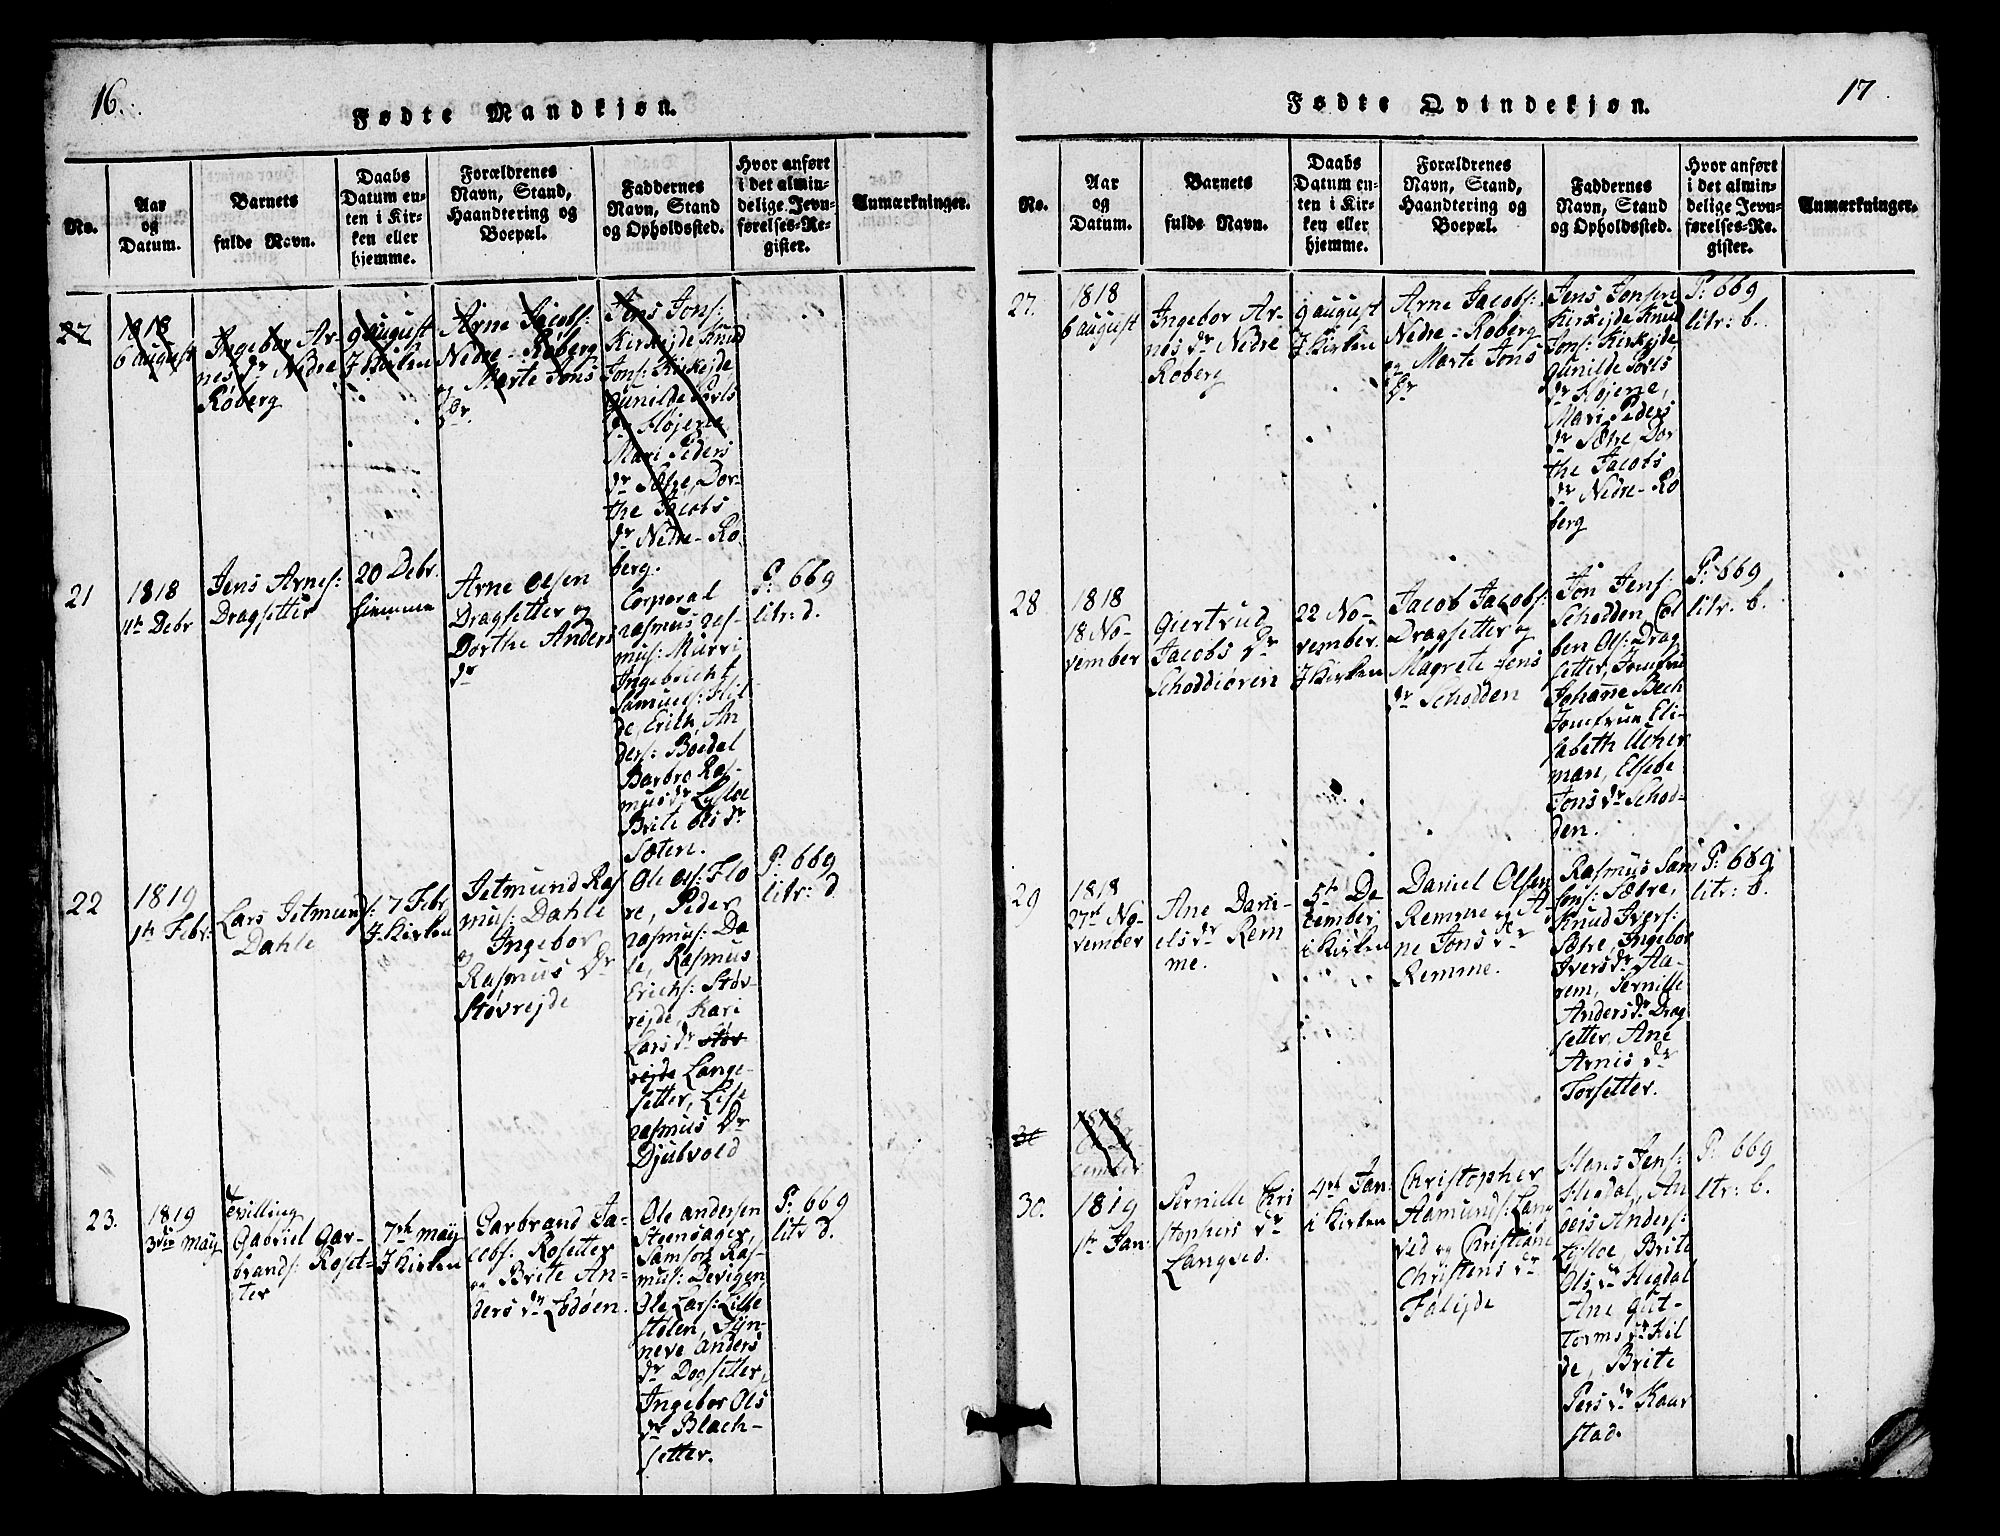 16.
Fødte Mandkjøn.
No.
Aar
og
Datum.
Barnets
fulde Navn.
Daabs
Datum en-
ten i Kir-
ken eller
hjemme.
Forældrenes
Navn, Stand,
Haandtering og
Boepæl.
Faddernes
Navn, Stand
og Opholdssted.
Hvor anført
i det almin-
delige Jevn-
førelses-Re-
gister.
Anmærkninger.
27
1818
6 august
Ingebor Ar-
nes dr Nedre
Røberg
9 august
I Kirken
Arne Jacobs:
Nedre-Røberg
og Marte Jons
dr.
Jens Jons:
Kirkejde Knud
Jons: Kirkejde
Gunilde Povls
dr Højene
Mari Peders
dr Sætre, Dor-
the Jacobs
dr Nedre-Rø-
berg.
21
1818
4th Debr
Jens Arnes:
Dragsetter
20 Debr.
hiemme
Arne Olsen
Dragsetter og
Dorthe Anders
dr
Corporal
Rasmus Ras-
mus: Murri
Ingebricht
Samuels: Hil-
de, Erich An-
ders: Bøedal
Barbro Ras-
mus dr Lysloe
Brite Ols dr
Sæten.
P: 669
litr: d.
22
1819
1th Febr:
Lars Jetmund
s: Dahle
7 Febr
I Kirken
Jetmund Ras
mus: Dahle
og Ingebor
Rasmus Dr
Støvrejde
Ole Ols: Flo
re, Peder
Rasmus: Da
le, Rasmus
Erichs: Støv-
rejde, Kari
Lars dr Støv
rejde Lange-
setter, Lisp
Rasmus Dr
Djubvold
P: 669
litr: d
23.
1819
3die maÿ
Tvilling
Gabriel Gar-
brands: Roset-
ter
7th maÿ
I Kirken
Garbrand Ja-
cobs: Rosetter
og Brite An-
ders dr Lodøen.
Ole Andersen
Steensager,
Samson Ras-
mus: Devigen
Ole Lars: Lille
stølen, Syn-
neve Anders
dr Dogsetter,
Ingebor Ols
dr Blach-
setter.
P: 669
litr d.
17
Fødte Qvindekjøn.
No.
Aar
og
Datum.
Barnets
fulde Navn.
Daabs
Datum en-
ten i Kir-
ken eller
hjemme.
Forældrenes
Navn, Stand,
Haandtering og
Boepæl.
Faddernes
Navn, Stand
og Opholdssted.
Hvor anført
i det almin-
delige Jevn-
førelses-Re-
gister.
Anmærkninger.
27.
1818
6 august
Ingebor Ar-
nes dr Nedre
Roberg
9 august
I Kirken
Arne Jacobs:
Nedre-Roberg
og Marte Jons
dr
Jens Jonsen
Kirkejde Knud
Jons: Kirkejde
Gunilde Povls
dr Højene,
Mari Peders
dr Sætre Dor
the Jacobs
dr Nedre-Rø
berg
P: 669
litr: b.
28
1818
18 No-
vember
Giertrud
Jacobs dr
Schoddioren
22 No-
vember.
I Kirken
Jacob Jacobs:
Dragsetter og
Magrete Jens
dr Schodden
Jon Jens:
Schodden Col
ben Ols: Drag
setter, Jomfru
Johanne Bech
Jomfrue Eli-
sabeth Ucher
man, Elsebe
Jons dr Schod-
den.
P: 669
litr. b.
29
1818
27de No-
vember
Ane Dani-
els dr Rem
me.
5th De
cember
i Kirken
Daniel Olsen
Remme og A
ne Jons dr
Remme.
Rasmus Sam
sons: Sætre,
Knud Ivers:
Sætre, Ingebor
Ivers dr Aa-
rem, Pernille
Anders dr Drag
setter, Ane
Arnes dr
Torsetter.
P: 669
litr: b.
30
1818
cember
30.
1819
1th Jan:
Pernille Chri
stophers dr
Langsed.
4th Jan:
i Kirken
Christopher
Aamunds: Lang
sed og Christiane
Christens dr
Faleide
Hans Jens:
Hegdal, An
Anders:
Lysloe, Brite
Ols dr Hegdal
Ane Gut-
torms dr Hil
de, Brite
Pers dr Kaar
stad.
P: 669
ltr: b.